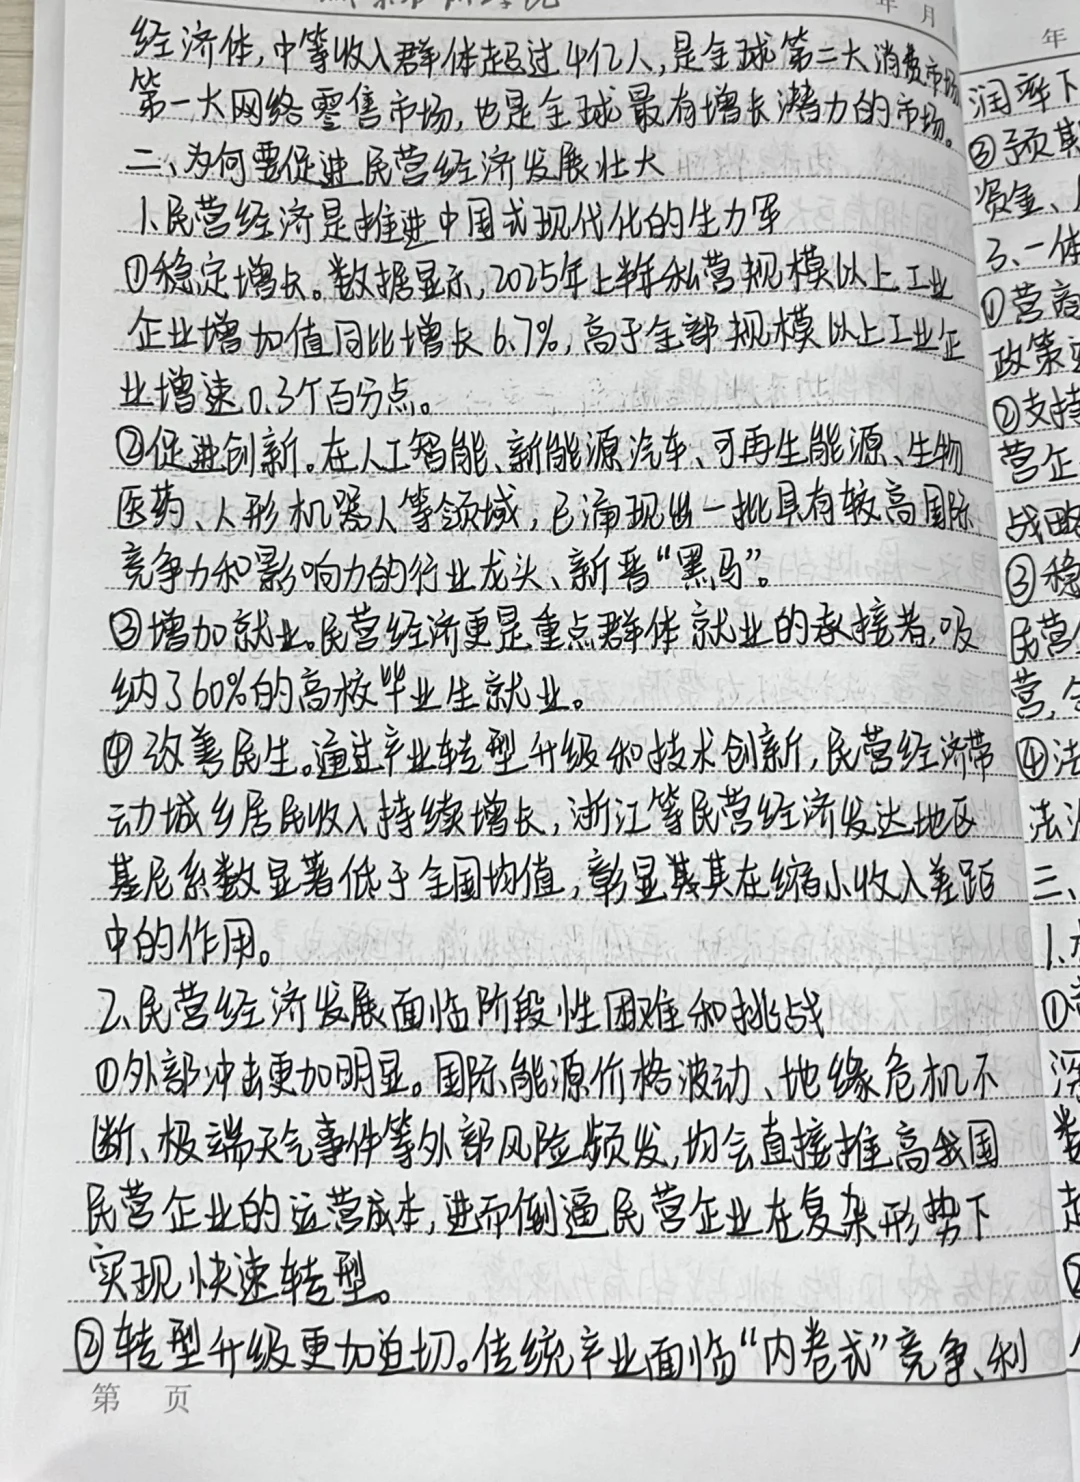 年 月
经济体,中等收入群体超过4亿人,是全球第二大消费市场
第一大网络零售市场,也是全球最有增长潜力的市场。
二、为何要促进民营经济发展壮大
1.民营经济是推进中国式现代化的生力军
①稳定增长。数据显示,2025年上半年私营规模以上工业
企业增加值同比增长6.7%,高于全部规模以上工业企
业增速0.3个百分点。
②促进创新。在人工智能、新能源汽车、可再生能源、生物
医药、人形机器人等领域,已涌现出一批具有较高国际
竞争力和影响力的行业龙头、新晋“黑马”。
③增加就业。民营经济更是重点群体就业的承接者,吸
纳了60%的高校毕业生就业。
④改善民生。通过产业转型升级和技术创新,民营经济带
动城乡居民收入持续增长,浙江等民营经济发达地区
基尼系数显著低于全国均值,彰显其其在缩小收入差距
中的作用。
2.民营经济发展面临阶段性困难和挑战
①外部冲击更加明显。国际能源价格波动、地缘危机不
断、极端天气事件等外部风险频发,均会直接推高我国
民营企业的运营成本,进而倒逼民营企业在复杂形势下
实现快速转型。
②转型升级更加迫切。传统产业面临“内卷式”竞争、利
第 页
年
润率下
③预期
资金、
3.一体
①营商
政策
②支持
营企
战略
③稳
民营
营,
④法
法
三、
1.
①
深
数
②